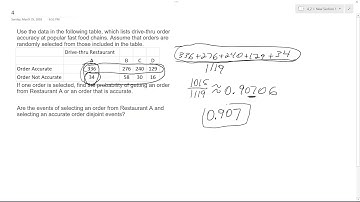 4
Sunday, March 22, 2020 5:01 PM
Use the data in the following table, which lists drive-thru order
accuracy at popular fast food chains. Assume that orders are
randomly selected from those included in the table.
Drive-thru Restaurant
A B C D
Order Accurate 336 276 240 129
Order Not Accurate 34 58 30 16
If one order is selected, find the probability of getting an order
from Restaurant A or an order that is accurate.
Are the events of selecting an order from Restaurant A and
selecting an accurate order disjoint events?
336+276+240+129+34
1119
1015
1119
≈ 0.90706
0.907